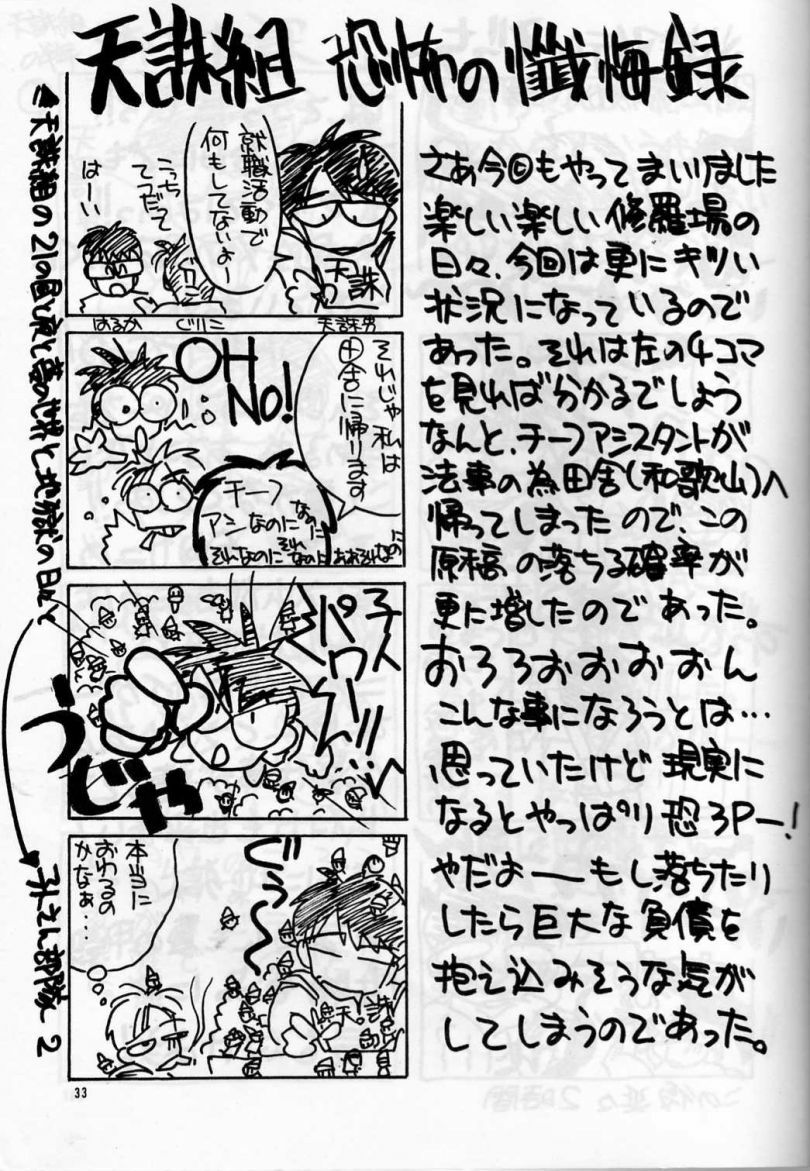 天誅組 恐怖の懺悔録
さあ今回もやってまいりました
楽しい楽しい修羅場の
日々、今回は更にキツい
状況になっているので
あった。それは左の4コマ
を見れば分かるでしょう
なんと、チーフアシスタントが
法事の為田舎(和歌山)へ
帰ってしまったので、この
原稿の落ちる確率が
更に増したのであった。
おろろおおおおん
こんな事になろうとは…
思っていたけど現実に
なるとやっぱり恐ろP—!
やだよ——もし落ちたり
したら巨大な負債を
抱え込みそうな気が
してしまうのであった。
就職活動で
何もしてないよー
こっち
てつだって
はーい
天誅
はるか
ぐりこ
天誅男
それじゃ私は
田舎に帰ります
OH
NO!
チーフ
アシなのに
なのに
それなのに
それなのに
ああそれなのに
子
パワー!!
うじゃ
ぐぅ〜〜
本当に
おわるの
かなぁ…
天誅
天誅組の21の昼と夜と
地獄の日々
部隊 2
33